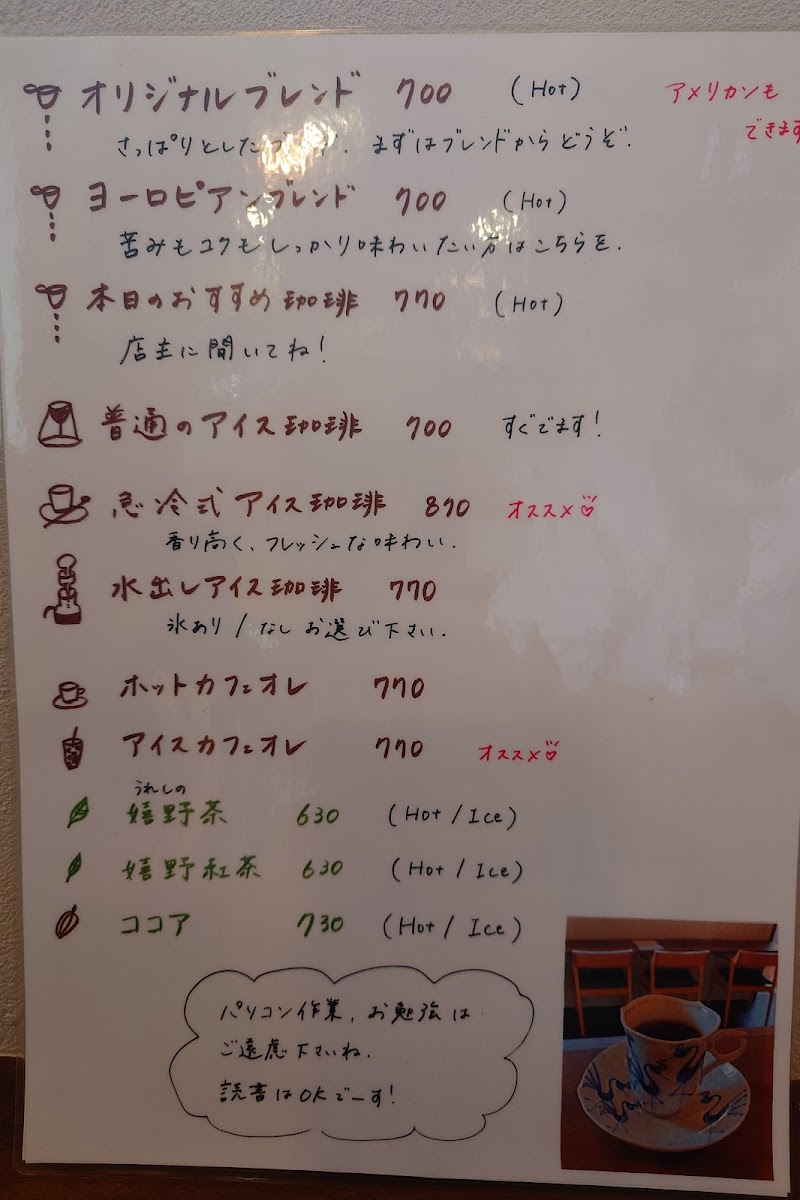 オリジナルブレンド 700 (Hot) アメリカンも
できます
さっぱりとしたブレンド. まずはブレンドからどうぞ.
ヨーロピアンブレンド 700 (Hot)
苦みもコクもしっかり味わいたい方はこちらを.
本日のおすすめ珈琲 770 (Hot)
店主に聞いてね!
普通のアイス珈琲 700 すぐでます!
急冷式アイス珈琲 870 オススメ
香り高く、フレッシュな味わい.
水出しアイス珈琲 770
氷あり/なしお選び下さい.
ホットカフェオレ 770
アイスカフェオレ 770 オススメ
うれしの
嬉野茶 630 (Hot / Ice)
嬉野紅茶 630 (Hot / Ice)
ココア 730 (Hot / Ice)
パソコン作業, お勉強は
ご遠慮下さいね.
読書はOKでーす!